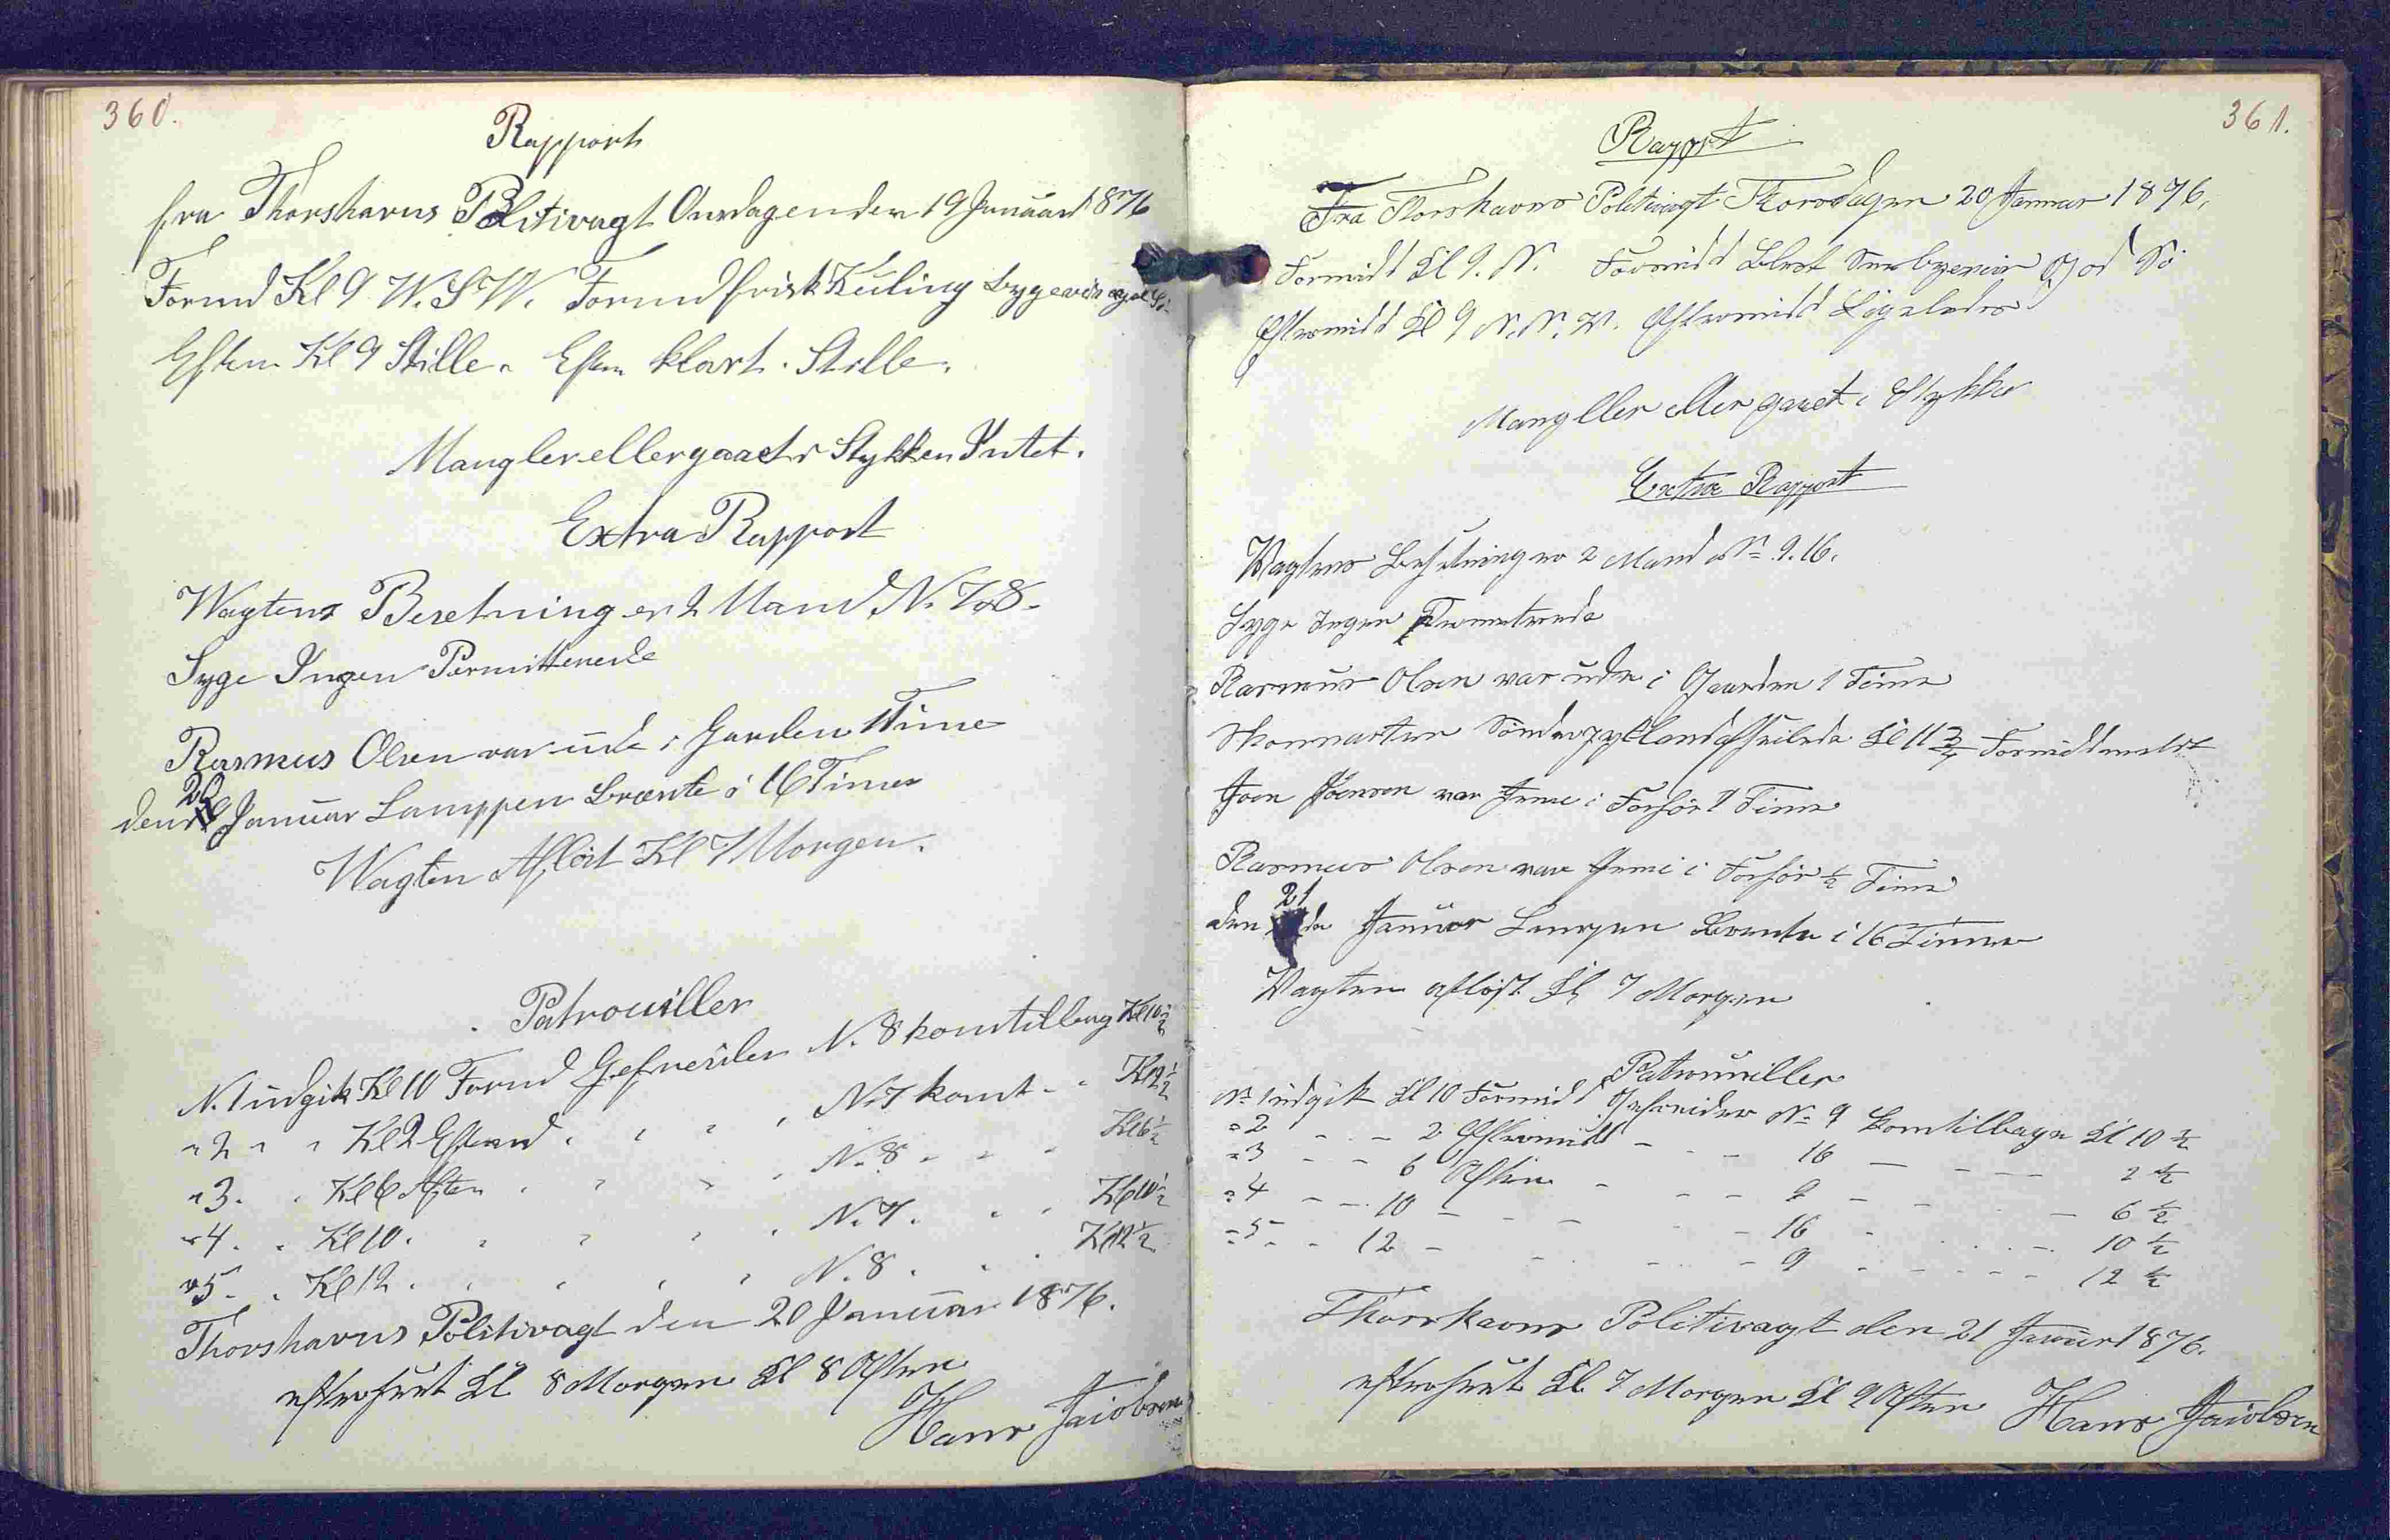 360.
Rapport
fra Thorshavns Politivagt Onsdagen den 19 Januar 1876
Formd Kl 9 W.S.W. Formd frisk Kuling bygeveir
Efterm Kl 9 Stille. Efterm klart. Stille.
Mangler eller gaaet i Stykker Intet.
Extra Rapport
Wagtens Besetning er 2 Mand N. 7 & 8.
Syge Ingen Permitterede
Rasmus Olsen var ude i Gaarden 1 Time
den 20 Januar Lamppen brænte i 16 Timer
Wagten Afløst Kl 7 Morgen.
Patrouiller
N. 1 udgik Kl 10 Formd Gefreider N. 8 kom tilbag Kl 10 1/2
" 2 " " Kl 2 Eftermd " " " " N. 7 komt " " Kl 2 1/2
" 3 " Kl 6 Aften " " " " N. 8 " " " Kl 6 1/2
" 4 " " Kl 10 " " " " " N. 7 " " " Kl 10 1/2
" 5 " " Kl 12 " " " " " N. 8 " " " Kl 12 1/2
Thorshavns Politivagt den 20 Januar 1876.
efterseet Kl 8 Morgen Kl 8 Aften
Hans Jacobsen
361.
Rapport
Fra Thorshavns Politivagt Thorsdagen 20 Januar 1876,
Formidd Kl 9. N. Formidd Blest Sneebyeveir God Sö
Eftermidd Kl 9 N.N.V. Eftermidd Ligeledes
Mangller eller gaaet i Stykker
Extra Rapport
Vagtens Besetning er 2 Mand No 9. 16.
Syge Ingen Permeterede
Rasmus Olsen var ude i Gaarden 1 Time
Skonnarten Sönderjylland Seilede Kl 11 3/4 Formiddernat
Joen Joensen var Inne i Forhör 1 Time
Rasmus Olsen var Inne i Forhör 1/2 Time
den 21 de Januar Lampen Brente i 16 Timer
Vagten afløst Kl 7 Morgen
Patrouiller
No 1 udgik Kl 10 Formidd Gefreider No 9 komtilbage Kl 10 1/2
" 2 - - - 2 Eftermidd - - - 16 - - - 2 1/2
" 3 - - 6 Aften - - - 9 - - - 6 1/2
" 4 - - 10 - - - - 16 - - - 10 1/2
" 5 - - 12 - - - - 9 - - - 12 1/2
Thorshavns Politivagt den 21 Januar 1876.
efterseet Kl 7 Morgen Kl 9 Aften Hans Jacobsen